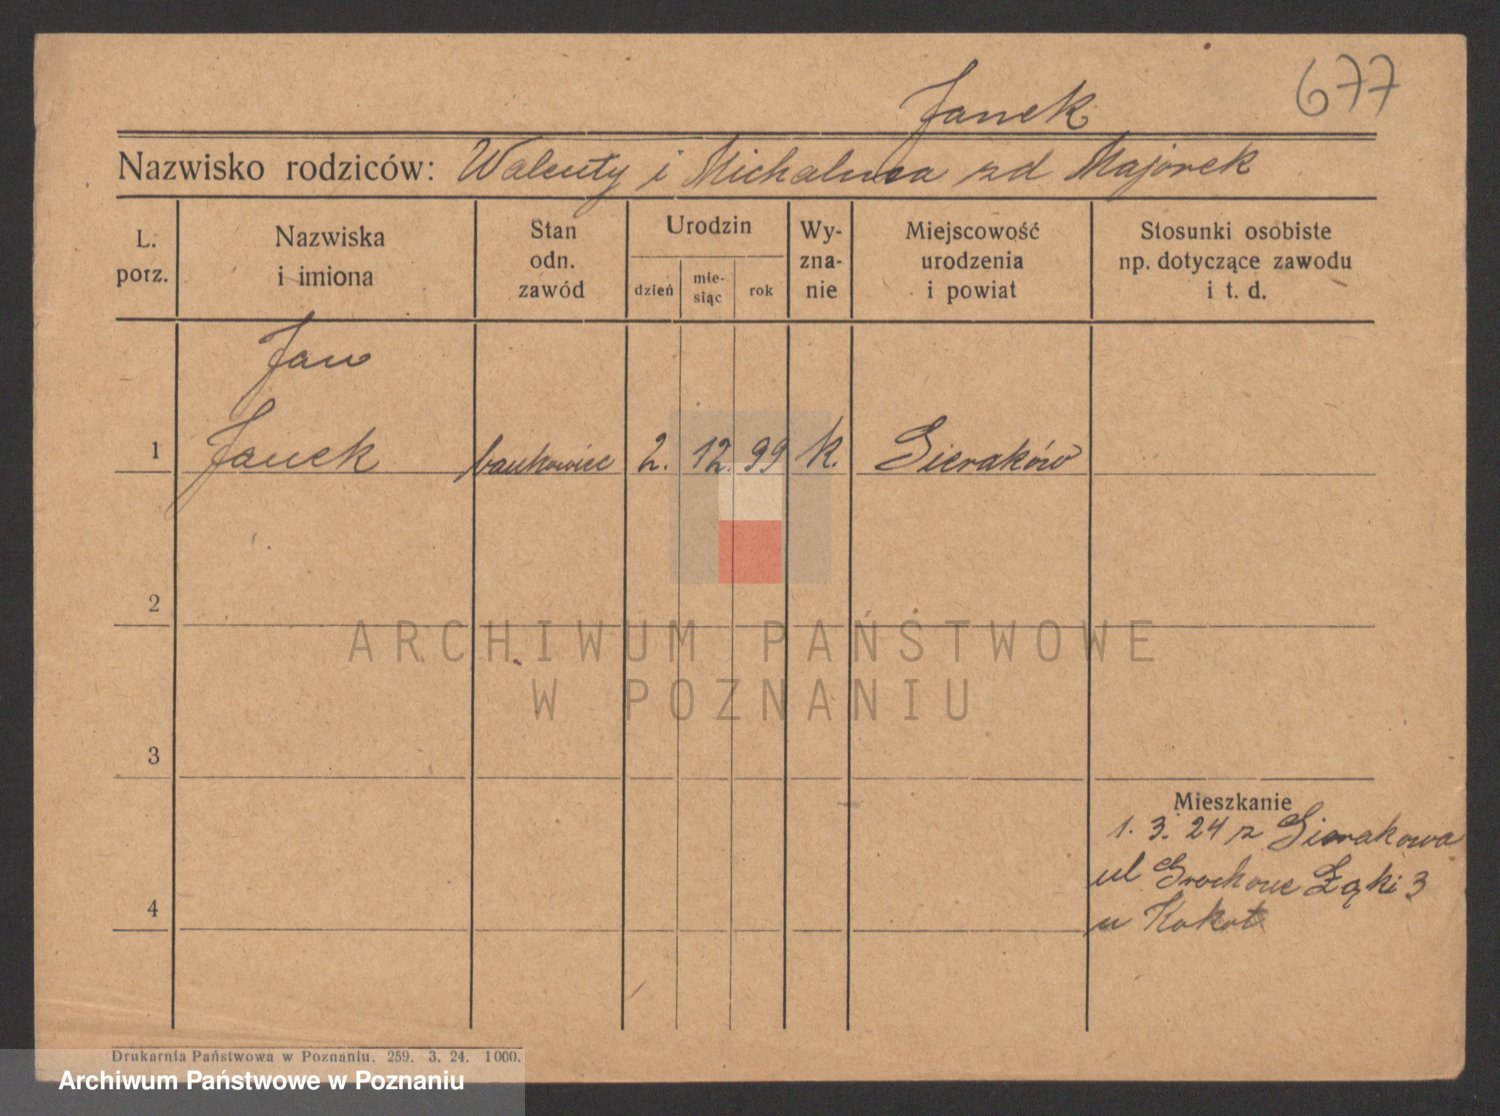 677
Janek
Nazwisko rodziców: Walenty i Michalina zd Majorek
L. porz.
Nazwiska i imiona
Stan odn. zawód
Urodzin
dzień
mie-
siąc
rok
Wy-
zna-
nie
Miejscowość
urodzenia
i powiat
Stosunki osobiste
np. dotyczące zawodu
i t. d.
Jan
1 Janek bankowiec 2. 12. 99 k. Sieraków
2
ARCHIWUM PAŃSTWOWE
W POZNANIU
3
Mieszkanie
1. 3. 24 z Sierakowa
ul Grochowe Łąki 3
4
u Kokot
Drukarnia Państwowa w Poznaniu. 259. 3. 24. 1000.
Archiwum Państwowe w Poznaniu